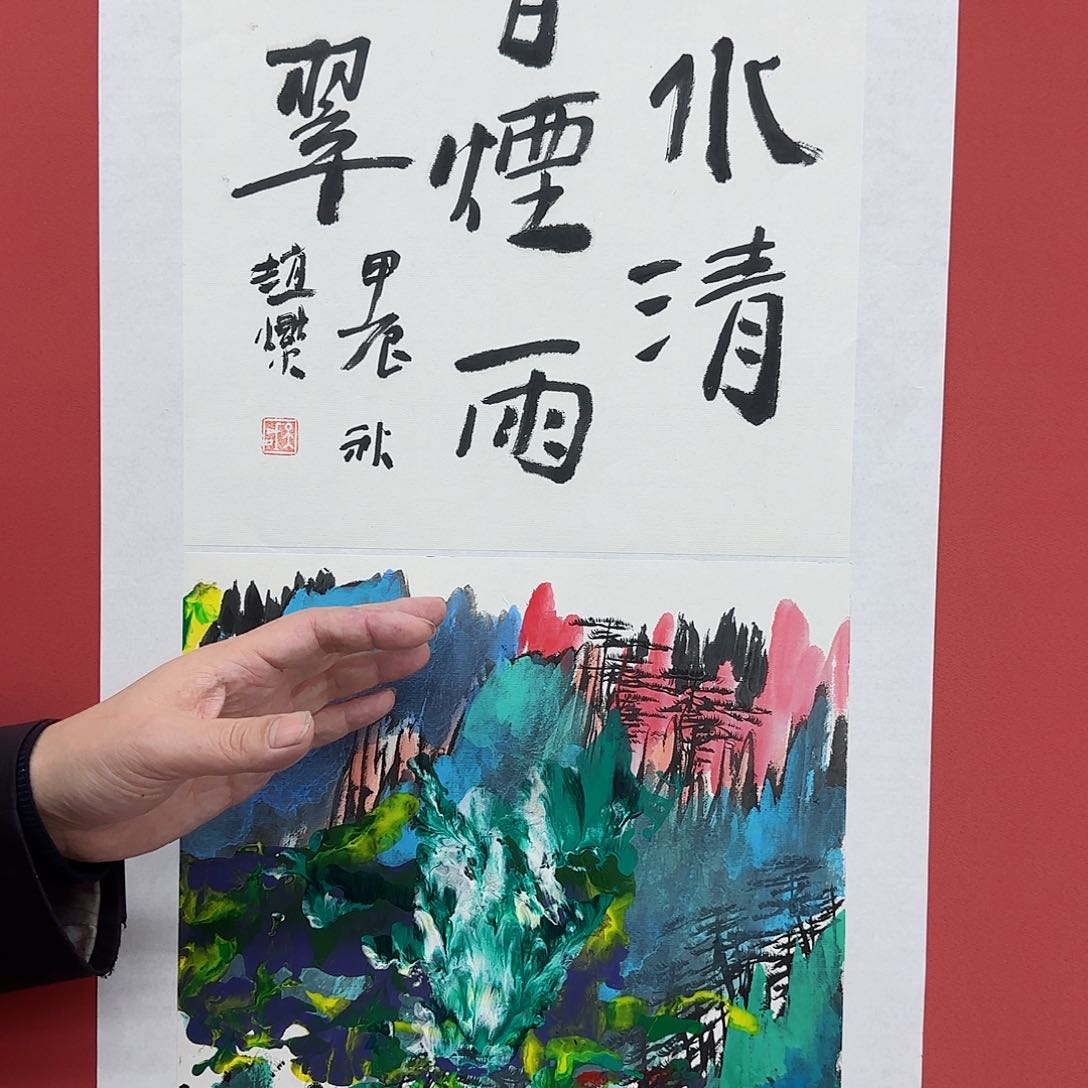 水清
煙雨
翠
甲辰秋
趙